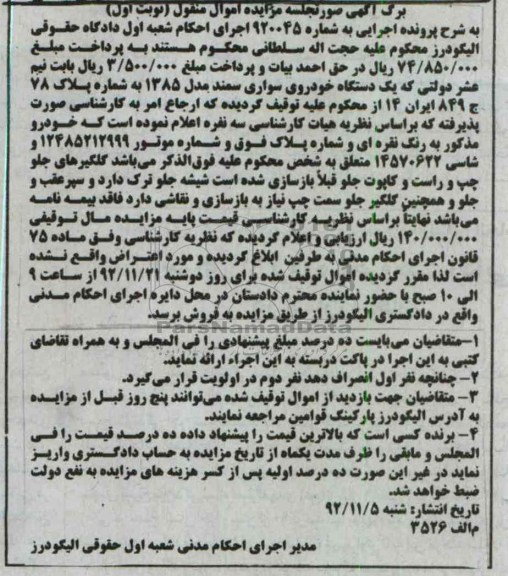 برگ آگهی صورتجلسه مزایده اموال منقول (نوبت اول)
به شرح پرونده اجرایی به شماره ۹۲۰۰۴۵ اجرای احکام شعبه اول دادگاه حقوقی
الیگودرز محکوم علیه حجت اله سلطانی محکوم هستند به پرداخت مبلغ
۷۴/۸۵۰/۰۰۰ ریال در حق احمد بیات و پرداخت مبلغ ۳/۵۰۰/۰۰۰ ریال بابت نیم
عشر دولتی که یک دستگاه خودروی سواری سمند مدل ۱۳۸۵ به شماره پلاک ۷۸
ج ۸۴۹ ایران ۱۴ از محکوم علیه توقیف گردیده که ارجاع امر به کارشناسی صورت
پذیرفته که براساس نظریه هیات کارشناسی سه نفره اعلام نموده است که خودرو
مذکور به رنگ نقره ای و شماره پلاک فوق و شماره موتور ۱۲۴۸۵۲۱۲۹۹۹ و
شاسی ۱۴۵۷۰۶۲۲ متعلق به شخص محکوم علیه فوق‌الذکر می‌باشد گلگیرهای جلو
چپ و راست و کاپوت جلو قبلاً بازسازی شده است شیشه جلو ترک دارد و سپر عقب و
جلو و همچنین گلگیر جلو سمت چپ نیاز به بازسازی و نقاشی دارد فاقد بیمه نامه
می‌باشد نهایتاً براساس نظریه کارشناسی قیمت پایه مزایده مال توقیفی
۱۴۰/۰۰۰/۰۰۰ ریال ارزیابی و اعلام گردیده که نظریه کارشناسی وفق ماده ۷۵
قانون اجرای احکام مدنی به طرفین ابلاغ گردیده و مورد اعتراض واقع نشده
است لذا مقرر گردیده اموال توقیف شده برای روز دوشنبه ۹۲/۱۱/۲۱ از ساعت ۹
الی ۱۰ صبح با حضور نماینده محترم دادستان در محل دایره اجرای احکام مدنی
واقع در دادگستری الیگودرز از طریق مزایده به فروش برسد.
ParsNamadData
۱-متقاضیان می‌بایست ده درصد مبلغ پیشنهادی را فی المجلس و به همراه تقاضای
کتبی به این اجرا در پاکت دربسته به این اجراء ارائه نماید.
۲- چنانچه نفر اول انصراف دهد نفر دوم در اولویت قرار می‌گیرد.
۳- متقاضیان جهت بازدید از اموال توقیف شده می‌توانند پنج روز قبل از مزایده
به آدرس الیگودرز پارکینگ قوامین مراجعه نمایند.
۴- برنده کسی است که بالاترین قیمت را پیشنهاد داده ده درصد قیمت را فی
المجلس و مابقی را ظرف مدت یکماه از تاریخ مزایده به حساب دادگستری واریز
نماید در غیر این صورت ده درصد اولیه پس از کسر هزینه های مزایده به نفع دولت
ضبط خواهد شد.
تاریخ انتشار: شنبه ۹۲/۱۱/۵
م‌الف ۳۵۲۶
مدیر اجرای احکام مدنی شعبه اول حقوقی الیگودرز